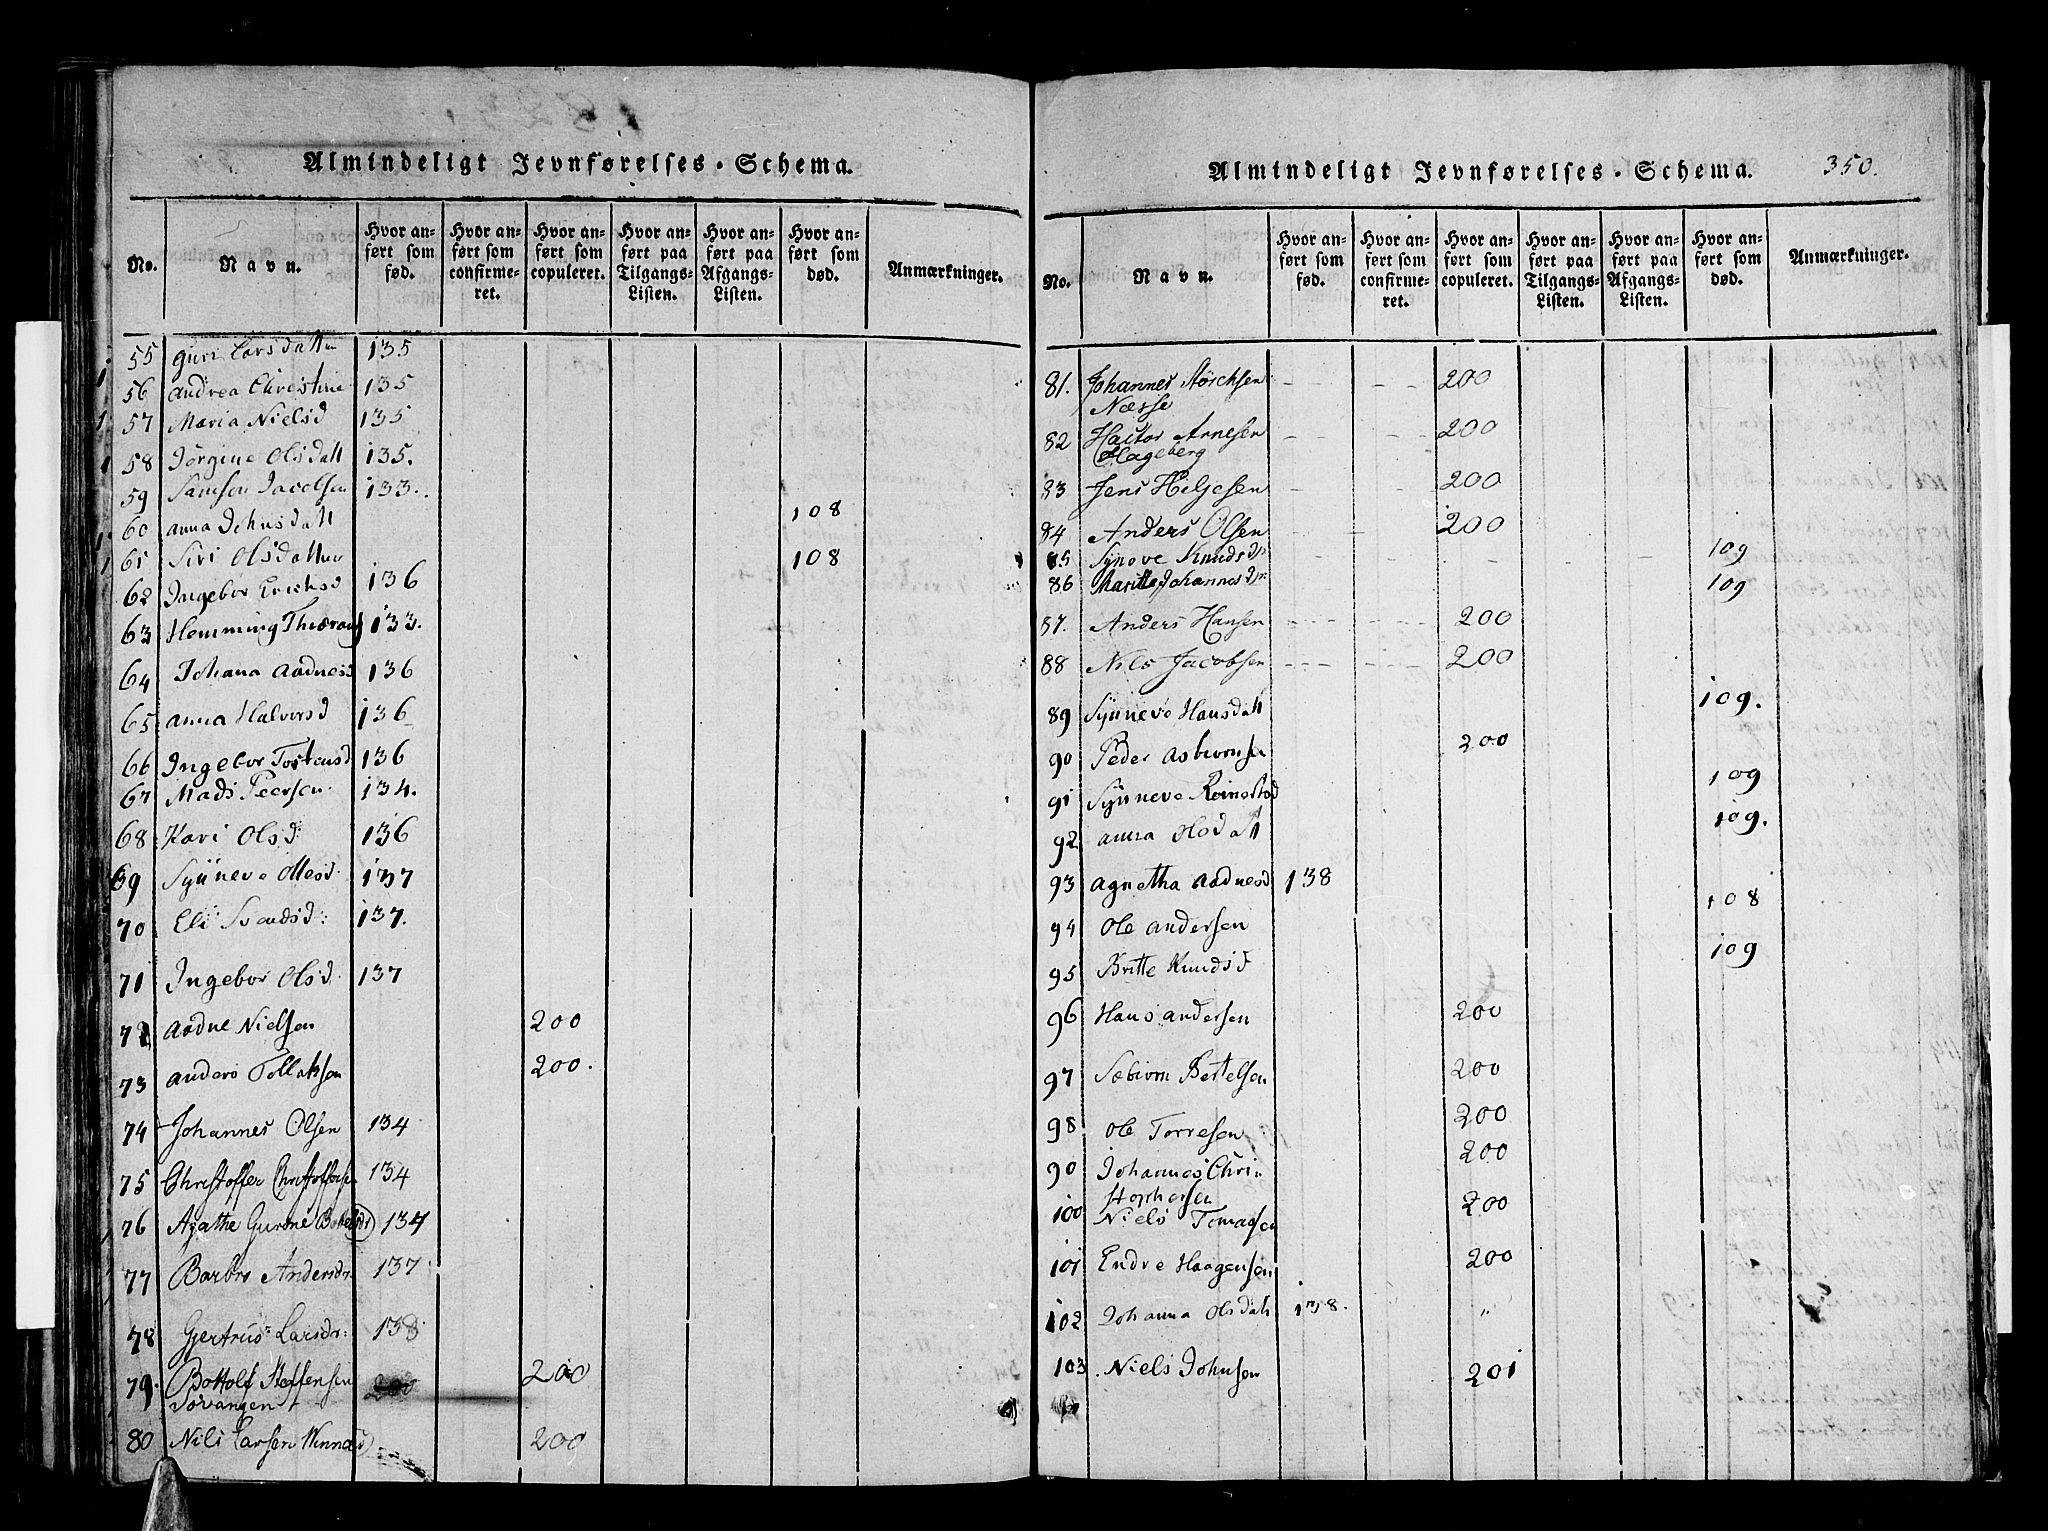 Almindeligt Jevnførelses-Schema.
No. Navn. Hvor anført som fød. Hvor anført som confirmeret. Hvor anført som copuleret. Hvor anført paa Tilgangs-Listen. Hvor anført paa Afgangs-Listen. Hvor anført som død. Anmærkninger.
55 Guri Larsdatter 135
56 Andrea Christine 135
57 Maria Nielsd 135
58 Jørgine Olsdatt 135.
59 Samson Jacobsen 133.
60 Anna Johnsdatt 108
61 Siri Olsdatter 108
62 Ingebor Erichsd 136
63 Hemming 133.
64 Johana Aadnesd 136
65 Anna Halvorsd 136
66 Ingebor Tostensd 136
67 Mads Peersen 134.
68 Kari Olsd: 136
69 Synneve Ollesd. 137
70 Eli Svendsd: 137.
71 Ingebor Olsd. 137
72 Aadne Nielsen 200
73 Anders Tollaksen 200.
74 Johannes Olsen 134
75 Christoffer Christoffersen 134
76 Agathe Gurine 137
77 Barbro Andersdr. 137
78 Gjertrud Larsdr: 138
79. Bottolf Steffensen 200 200
Sørvangen
80 Nils Larsen Winnæs 200
Almindeligt Jevnførelses-Schema. 350.
No. Navn. Hvor anført som fød. Hvor anført som confirmeret. Hvor anført som copuleret. Hvor anført paa Tilgangs-Listen. Hvor anført paa Afgangs-Listen. Hvor anført som død. Anmærkninger.
81. Johannes Størchsen 200
Næsse
82 Hactor Arnesen 200
Hageberg
83 Jens Heljesen 200
84 Anders Olsen 200
85 Synove Knudsdr 109
86 Maritte Johannesdr 109
87. Anders Hansen 200
88 Nils Jacobsen 200
89 Synneve Hansdatt 109.
90 Peder Asbiornsen 200
91 Synneve Reinestad 109
92 Anna Olsdatt 109.
93 Agnetha Aadnesd 138
94 Ole Andersen 108
95 Britte Knudsd 109
96 Hans Andersen 200
97 Sæbiorn Bertelsen 200
98 Ole Torresen 200
90 Johannes Chri- 200
stophersen
100 Niels Tomassen 200
101 Endre Haagensen 200
102 Johanna Olsdatt 138. "
103. Niels Johnsen 201